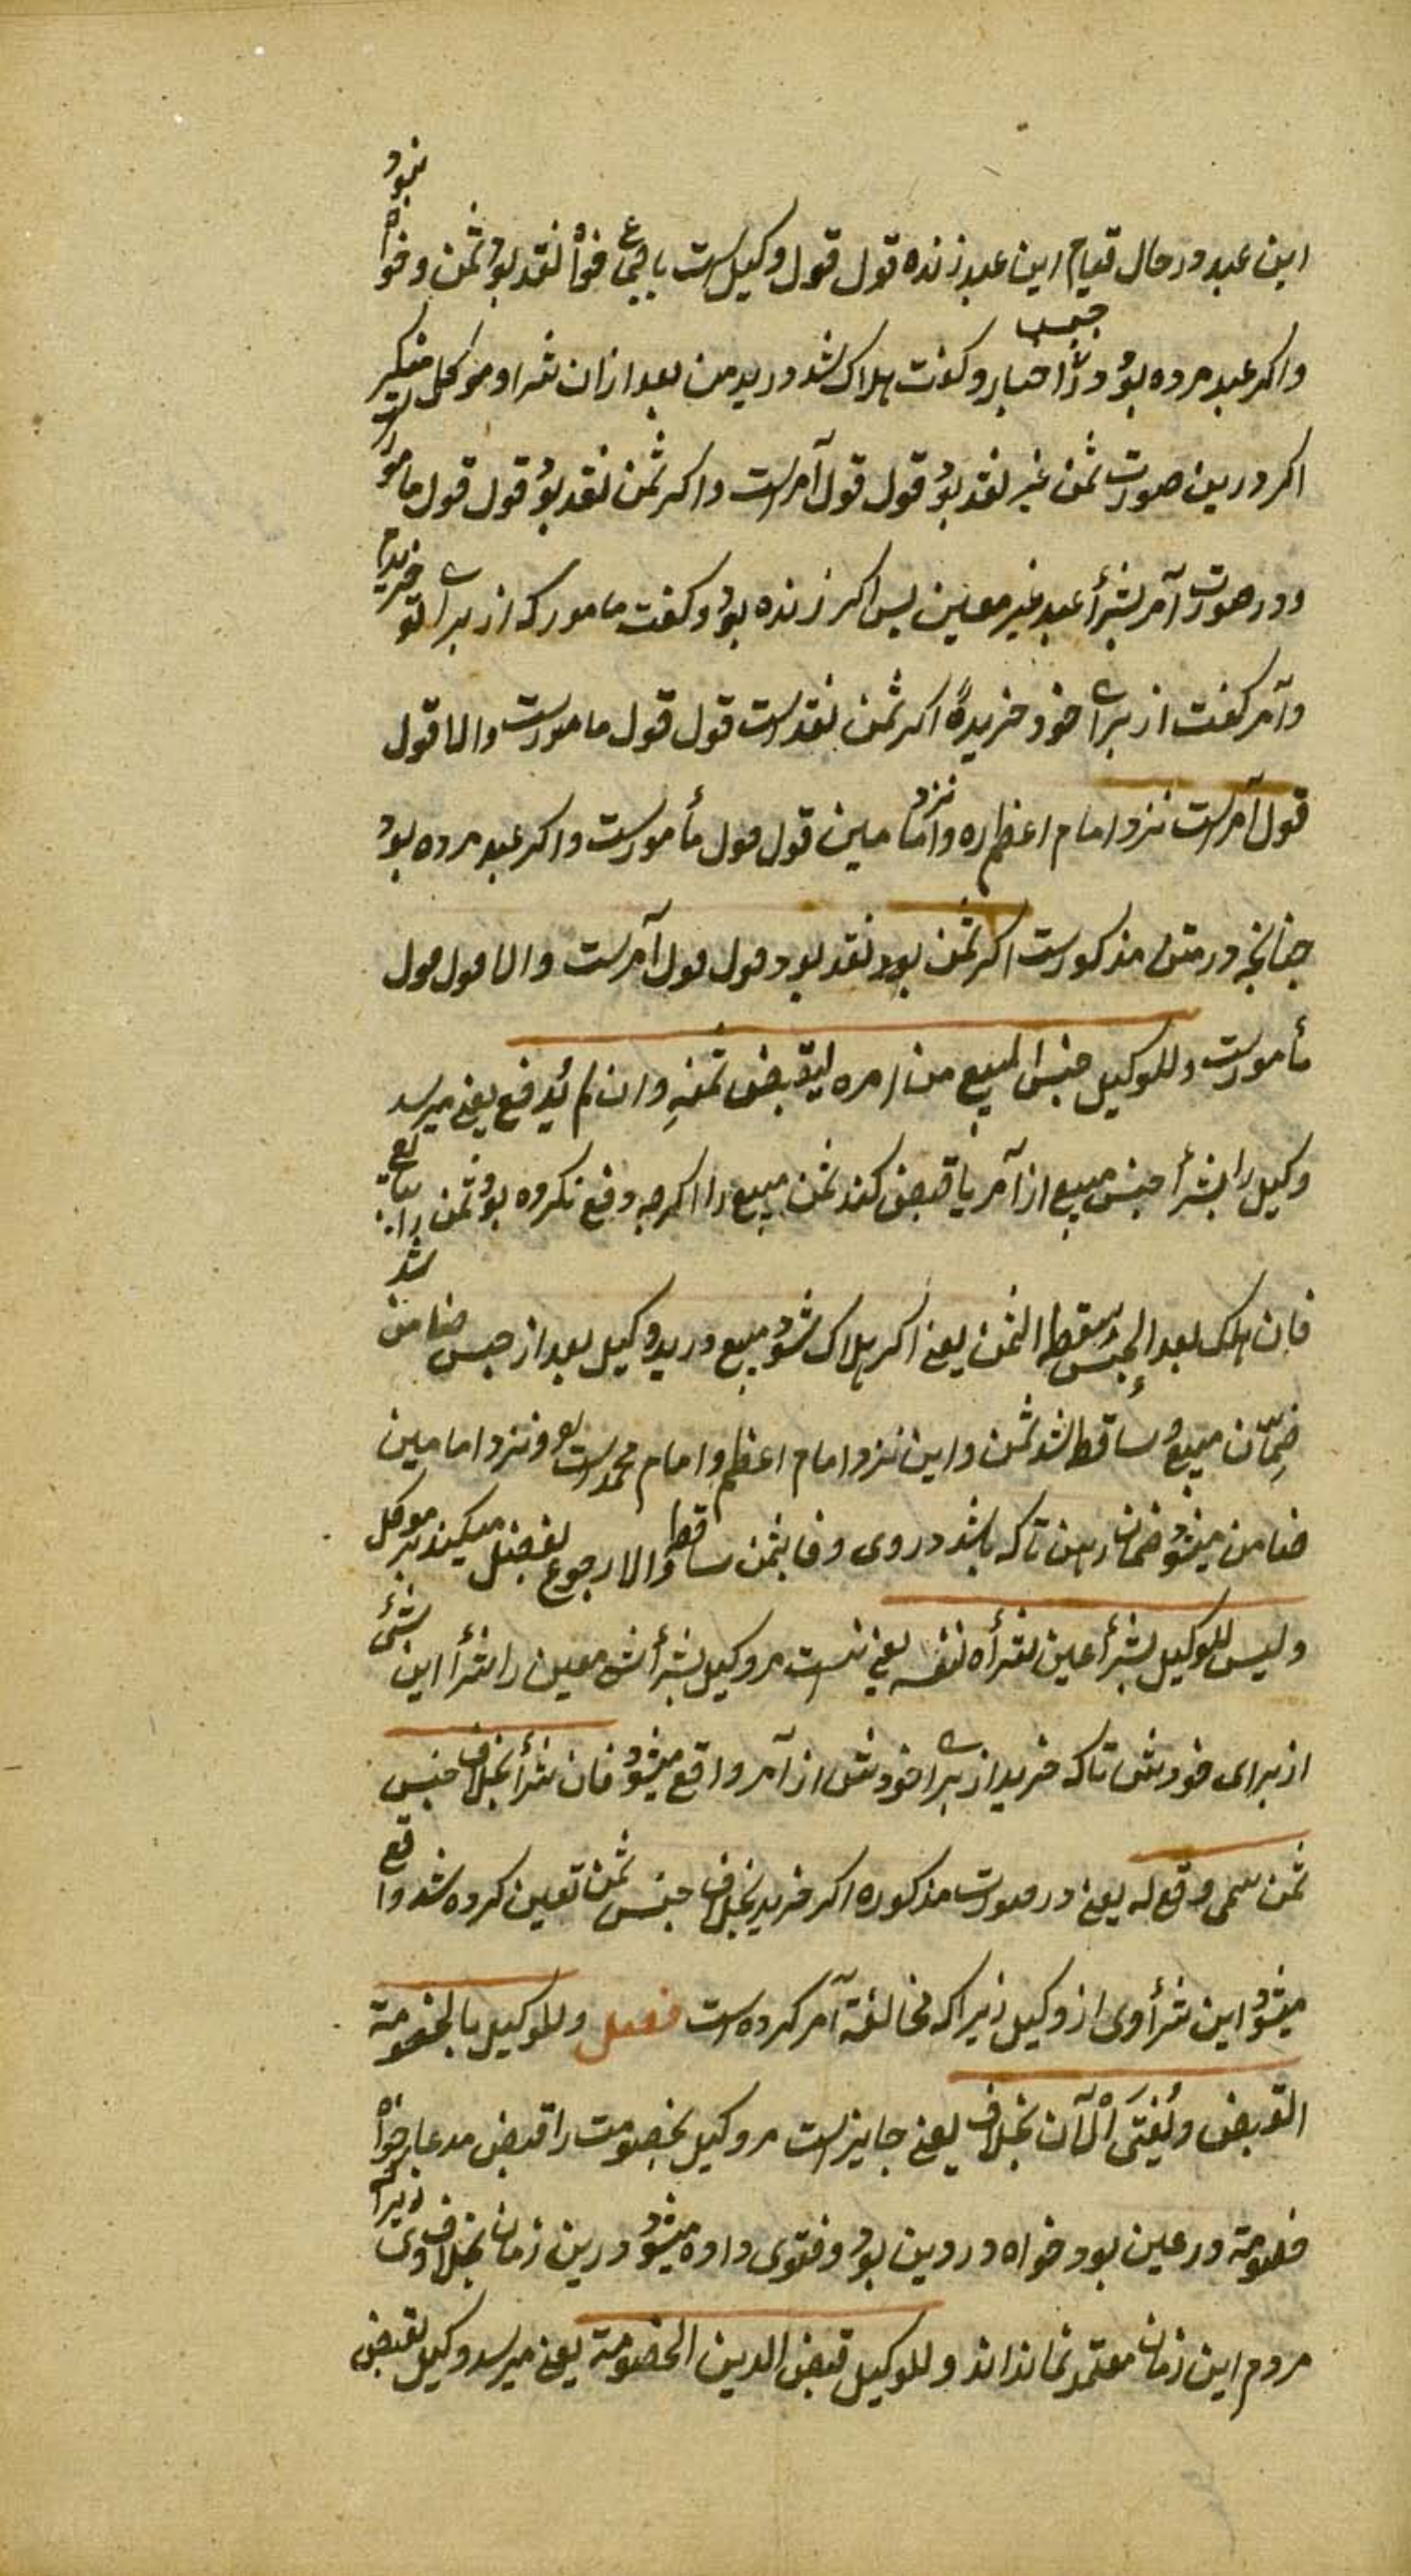 این عبد و در حال قیام این عبد زنده قول قول وکیل است باجماع خواه نقد بود ثمن و خواه نبود
و اکر عبد مرده بود و اخبار و کفت هلاک شد در ید من بعد از ان شرا و موکل منکر است
اکر درین صورت ثمن غیر نقد بود قول قول آمر است و اکر ثمن نقد بود قول قول مامور
و در صورت آمر بشرأ عبد غیر معین پس اکر زنده بود و کفت مامور که از برای تو خریدم
و آمر کفت از برای خود خریدهٔ اکر ثمن نقد است قول قول مامورست و الا قول
قول آمر است نزد امام اعظم ره و نزد امامین قول قول مأمورست و اکر عبد مرده بود
چنانچه در متن مذکورست اکر ثمن بود نقد بود قول قول آمرست و الا قول قول
مأمورست و للوکیل حبس المبیع من امره لیقبض ثمنه و ان لم یدفع یعنی میرسد
وکیل را بشرأ حبس مبیع از آمر یا قبض کند ثمن مبیع را اکرچه دفع نکرده بود ثمن را ببایع
فان هلک بعد الحبس سقط الثمن یعنی اکر هلاک شود مبیع در ید وکیل بعد از حبس ضامن شد
ضمان مبیع و ساقط شد ثمن و این نزد امام اعظم و امام محمدست و نزد امامین
ضامن میشود ضمان رهن تاکه باشد در وی وفا بثمن ساقط و الا رجوع بفضل میکند بر موکل
و لیس للوکیل بشرأ عین شرأه لنفسه یعنی نیست مر وکیل بشرأ شی معین را شرأ این شیٔ
از برای خودش تاکه خرید از برای خودش از آمر واقع میشود فان شرأ بخلاف جنس
ثمن سمی وقع له یعنی در صورت مذکوره اکر خرید بخلاف جنس ثمن تعین کرده شد واقع
میشود این شرأ وی از وکیل زیراکه مخالفة آمر کرده است فصل و للوکیل بالخصومة
القبض و یفتی الآن بخلافه یعنی جایز است مر وکیل بخصومت را قبض مدعا خواه
خصومة در عین بود خواه در دین بود و فتوی داده میشود درین زمان بخلاف وی زیراکه
مردم این زمان معتمد نمانده اند و للوکیل قبض الدین الخصومة یعنی میرسد وکیل بقبض